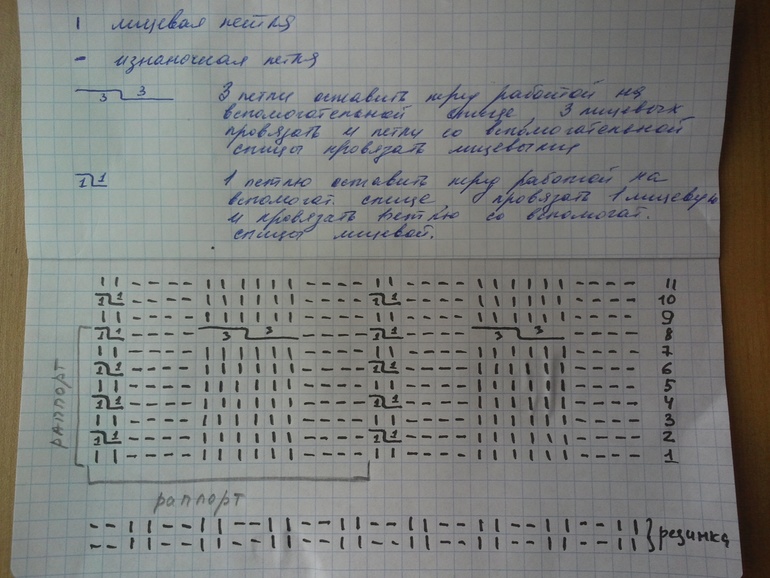 | лицевая петля
- изнаночная петля
3 3 3 петли оставить перед работой на
вспомогательной спице, 3 лицевых
провязать и петли со вспомогательной
спицы провязать лицевыми
1 1 1 петлю оставить перед работой на
вспомогат. спице, провязать 1 лицевую
и провязать петлю со вспомогат.
спицы лицевой.
| | - - - - | | | | | | - - - - | | - - - - | | | | | | - - - - 11
1 1 - - - - | | | | | | - - - - 1 1 - - - - | | | | | | - - - - 10
| | - - - - | | | | | | - - - - | | - - - - | | | | | | - - - - 9
1 1 - - - - 3 3 - - - - 1 1 - - - - 3 3 - - - - 8
| | - - - - | | | | | | - - - - | | - - - - | | | | | | - - - - 7
1 1 - - - - | | | | | | - - - - 1 1 - - - - | | | | | | - - - - 6
| | - - - - | | | | | | - - - - | | - - - - | | | | | | - - - - 5
1 1 - - - - | | | | | | - - - - 1 1 - - - - | | | | | | - - - - 4
| | - - - - | | | | | | - - - - | | - - - - | | | | | | - - - - 3
1 1 - - - - | | | | | | - - - - 1 1 - - - - | | | | | | - - - - 2
| | - - - - | | | | | | - - - - | | - - - - | | | | | | - - - - 1
раппорт
раппорт
- - | | - - | | - - | | - - | | - - | | - - | | - - | | - - | |
- - | | - - | | - - | | - - | | - - | | - - | | - - | | - - | | } резинка